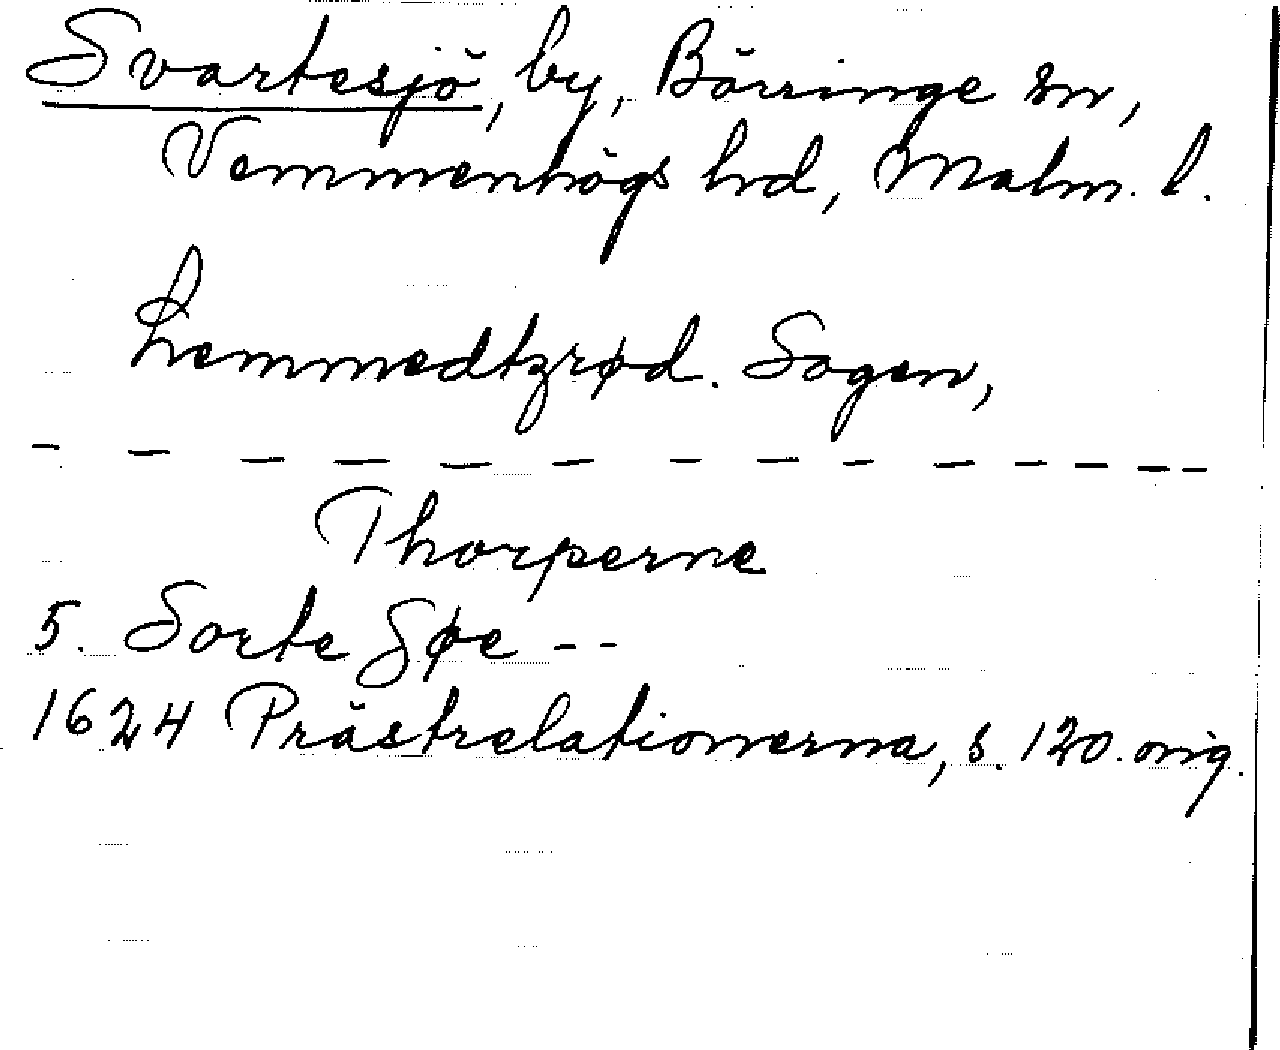 Svartesjö, by, Börringe sn,
Vemmenhögs hrd, Malm. l.
Lemmedtzrød. Sogen,
- - - - - - - - - - - - - -
Thorperne
5. Sorte Søe - -
1624 Prästrelationerna, s. 120. orig.